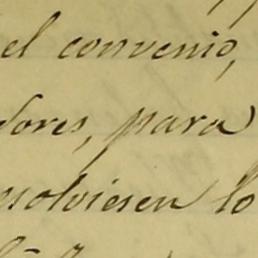 el convenio,
dores, para
solviesen lo